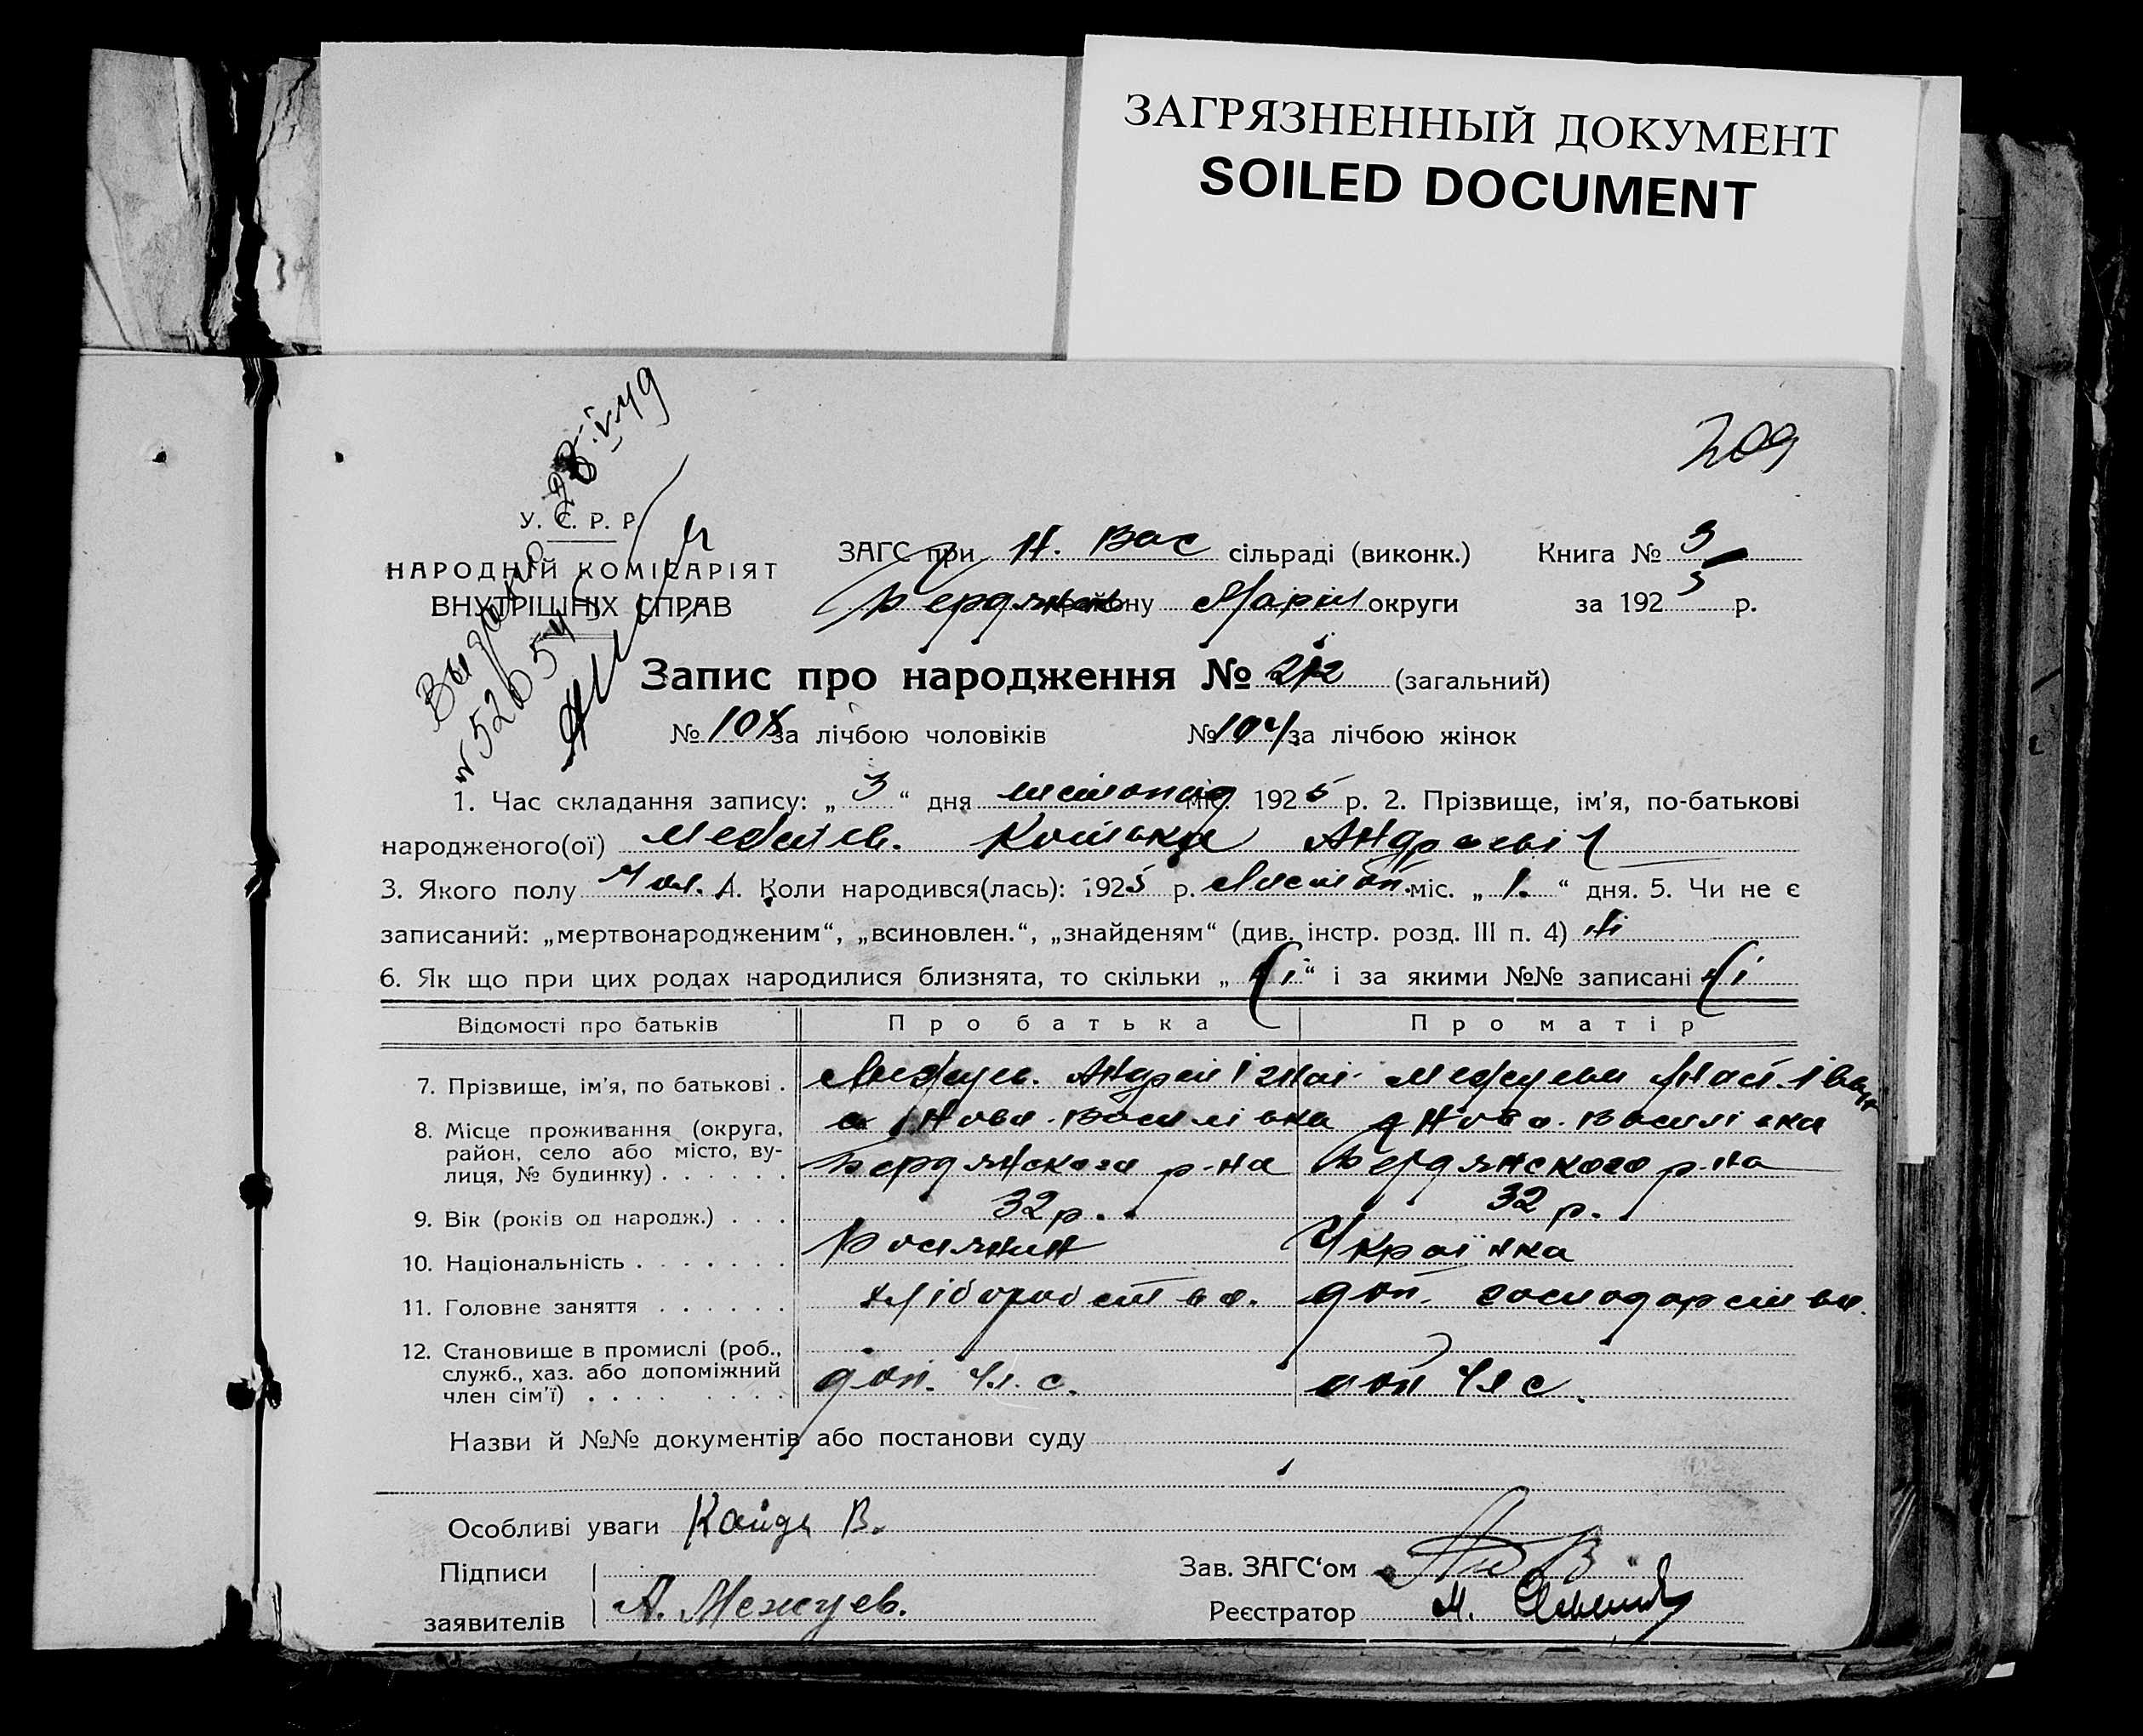 ЗАГРЯЗНЕННЫЙ ДОКУМЕНТ
SOILED DOCUMENT
209
28.V-49
У. С. Р. Р.
НАРОДНІЙ КОМІСАРІЯТ
ВНУТРІШНІХ СПРАВ
ЗАГС при Н. Вас сільраді (виконк.) Книга № 3
Бердянськ району Маріп округи за 1925 р.
Запис про народження № 212 (загальний)
№ 108 за лічбою чоловіків № 104 за лічбою жінок
1. Час складання запису: „ 3 “ дня листопад міс. 1925 р. 2. Прізвище, ім'я, по-батькові
народженого(ої) Межуєв. Андрієвіч
3. Якого полу Чол. 4. Коли народився(лась): 1925 р. Листоп. міс. „ 1. “ дня. 5. Чи не є
записаний: „мертвонародженим“, „всиновлен.“, „знайденям“ (див. інстр. розд. III п. 4) ні
6. Як що при цих родах народилися близнята, то скільки „ ні “ і за якими №№ записані ні
Відомості про батьків Про батька Про матір
7. Прізвище, ім'я, по батькові . Межуєв. Андрій Ігнат. Межуєва
8. Місце проживання (округа, район, село або місто, вулиця, № будинку) . . . . . . с Ново-Василівка с Ново-Василівка
Бердянского р-на Бердянского р-на
9. Вік (років од народж.) . . . 32 р. 32 р.
10. Національність . . . . . . . Росіянин Українка
11. Головне заняття . . . . . . хліборобство. доп. господарства.
12. Становище в промислі (роб., служб., хаз. або допоміжний член сім'ї) . . . . . . . . . доп. чл. с. доп чл с.
Назви й №№ документів або постанови суду
Особливі уваги Кайда В.
Підписи Зав. ЗАГС‘ом
заявителів А. Межуев. Реєстратор М.
Выдано
№ 526054